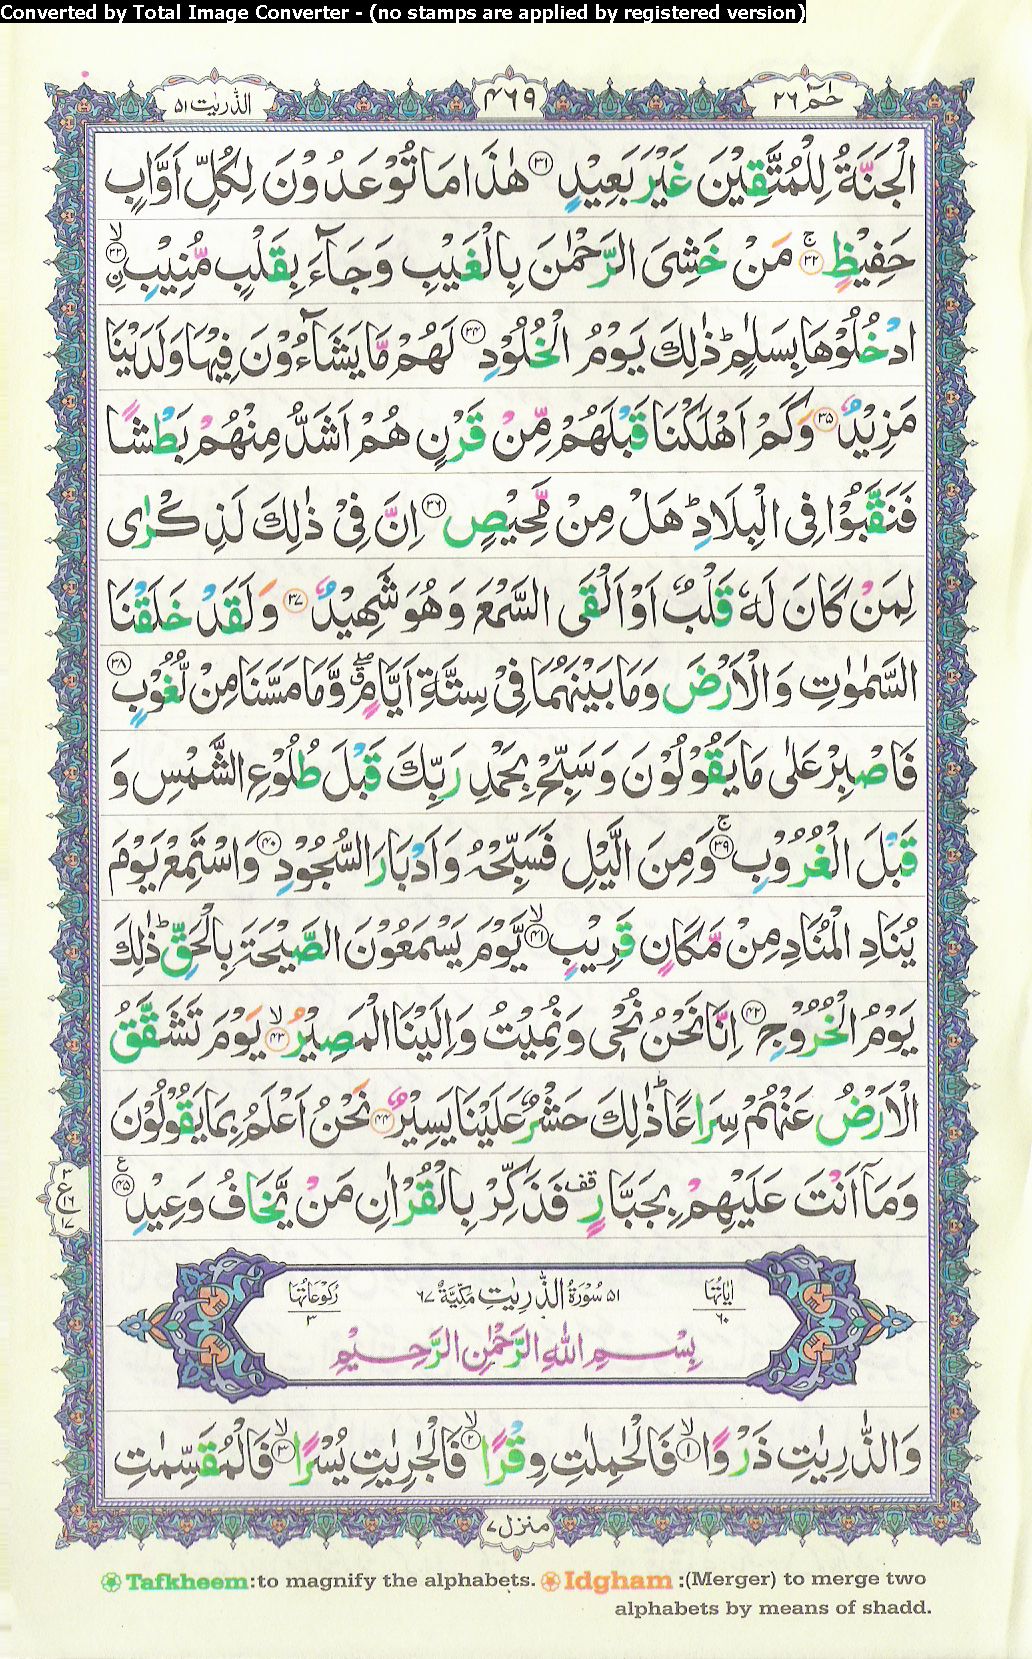 Converted by Total Image Converter - (no stamps are applied by registered version)
الذّٰریٰت ۵۱ ۴۶۹ حٰمٓ ۲۶
الْجَنَّةُ لِلْمُتَّقِیْنَ غَیْرَ بَعِیْدٍ ۝۳۱ هٰذَا مَا تُوْعَدُوْنَ لِكُلِّ اَوَّابٍ
حَفِیْظٍ ۝۳۲ۚ مَنْ خَشِیَ الرَّحْمٰنَ بِالْغَیْبِ وَ جَآءَ بِقَلْبٍ مُّنِیْبِ ۝۳۳ۙ
ِ۟ادْخُلُوْهَا بِسَلٰمٍ ؕ ذٰلِكَ یَوْمُ الْخُلُوْدِ ۝۳۴ لَهُمْ مَّا یَشَآءُوْنَ فِیْهَا وَلَدَیْنَا
مَزِیْدٌ ۝۳۵ وَكَمْ اَهْلَكْنَا قَبْلَهُمْ مِّنْ قَرْنٍ هُمْ اَشَدُّ مِنْهُمْ بَطْشًا
فَنَقَّبُوْا فِی الْبِلَادِ ؕ هَلْ مِنْ مَّحِیْصٍ ۝۳۶ اِنَّ فِیْ ذٰلِكَ لَذِكْرٰی
لِمَنْ كَانَ لَهٗ قَلْبٌ اَوْ اَلْقَی السَّمْعَ وَ هُوَ شَهِیْدٌ ۝۳۷ وَ لَقَدْ خَلَقْنَا
السَّمٰوٰتِ وَ الْاَرْضَ وَمَا بَیْنَهُمَا فِیْ سِتَّةِ اَیَّامٍ ۖۗ وَّمَا مَسَّنَا مِنْ لُّغُوْبٍ ۝۳۸
فَاصْبِرْ عَلٰی مَا یَقُوْلُوْنَ وَ سَبِّحْ بِحَمْدِ رَبِّكَ قَبْلَ طُلُوْعِ الشَّمْسِ وَ
قَبْلَ الْغُرُوْبِ ۝۳۹ۚ وَ مِنَ الَّیْلِ فَسَبِّحْهُ وَ اَدْبَارَ السُّجُوْدِ ۝۴۰ وَ اسْتَمِعْ یَوْمَ
یُنَادِ الْمُنَادِ مِنْ مَّكَانٍ قَرِیْبٍ ۝۴۱ۙ یَّوْمَ یَسْمَعُوْنَ الصَّیْحَةَ بِالْحَقِّ ؕ ذٰلِكَ
یَوْمُ الْخُرُوْجِ ۝۴۲ اِنَّا نَحْنُ نُحْیٖ وَ نُمِیْتُ وَ اِلَیْنَا الْمَصِیْرُ ۝۴۳ۙ یَوْمَ تَشَقَّقُ
الْاَرْضُ عَنْهُمْ سِرَاعًا ؕ ذٰلِكَ حَشْرٌ عَلَیْنَا یَسِیْرٌ ۝۴۴ نَحْنُ اَعْلَمُ بِمَا یَقُوْلُوْنَ
وَ مَاۤ اَنْتَ عَلَیْهِمْ بِجَبَّارٍ قف فَذَكِّرْ بِالْقُرْاٰنِ مَنْ یَّخَافُ وَعِیْدِ ۝۴۵ ع
۳ ع ۱۶ ۱۷
اٰیَاتُهَا ۶۰ ۵۱ سُوْرَةُ الذّٰرِیٰتِ مَكِّیَّةٌ ۶۷ رُكُوْعَاتُهَا ۳
بِسْمِ اللّٰهِ الرَّحْمٰنِ الرَّحِیْمِ
وَالذّٰرِیٰتِ ذَرْوًا ۝۱ۙ فَالْحٰمِلٰتِ وِقْرًا ۝۲ۙ فَالْجٰرِیٰتِ یُسْرًا ۝۳ۙ فَالْمُقَسِّمٰتِ
منزل ۷
Tafkheem:to magnify the alphabets. Idgham :(Merger) to merge two
alphabets by means of shadd.